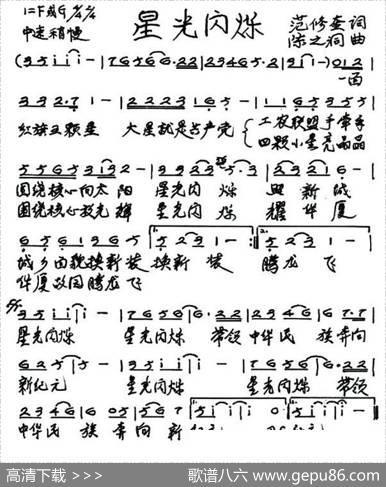 1=F或G 4/4 2/4
中速稍慢
星光闪烁
范修奎 词
陈之洞 曲
(3 5 i i i - | 1 7 6 5 6 6. 2 2 | 2 2 3 4 6 5. 2 | 3 1 - ) 0 1 2 |
一面
3 3 2. 7 1 - | 2 2 2 2 3 1 6 5 - | 1 1 6 5 1 9 -
红旗五颗星 大星就是共产党 工农联盟手牵手
四颗小星亮晶晶
5 5 6 5 3 1 3 2 - | 3 5 2 3 5 3. | 2 3 2 1 6 -
围绕核心向太阳 星光闪烁 兴新城
围绕核心放光辉 星光闪烁 耀华厦
6 5 6 1 3 6 5 | 5 2 3 1 - :| 5 2 3 1 -
城乡面貌换新装 换新装 腾龙飞
华厦故园腾龙飞
3 5 i i i - | 1 7 6 5 6 6. 2 2 | 2 3 4 6 | 6 5 3 2 1
星光闪烁 星光闪烁 带领中华民族奔向
6 2 5 5 - | 3 5 i i i - | 1 7 6 5 6 6. 2 2
新纪元 星光闪烁 星光闪烁 带领
2 2 3 4 6 | 6 0 5 | 5 6 7 | 5 i i i 0 | 5 i i i -
中华民族奔向新
高清下载 >>> 歌谱八六 www.gepu86.com